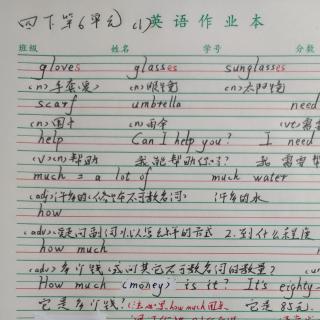 四下第6单元 (1) 英语作业本
班级 姓名 学号 分数
gloves glasses sunglasses
(n)手套(复) (n)眼镜 (n)太阳镜
scarf umbrella need
(n)围巾 (n)雨伞 (vt)需
help Can I help you? I need
(v)(n)帮助 我能帮助你吗? 我需要
much = a lot of much water
(adj)许多的(修饰不可数名词) 许多的水
how
(adv)疑问副词 2.到什么程度
how much
(adv)多少钱(或问其它不可数名词的数量?
How much (money) is it? It's eighty-
它是多少钱? how much 它是85元